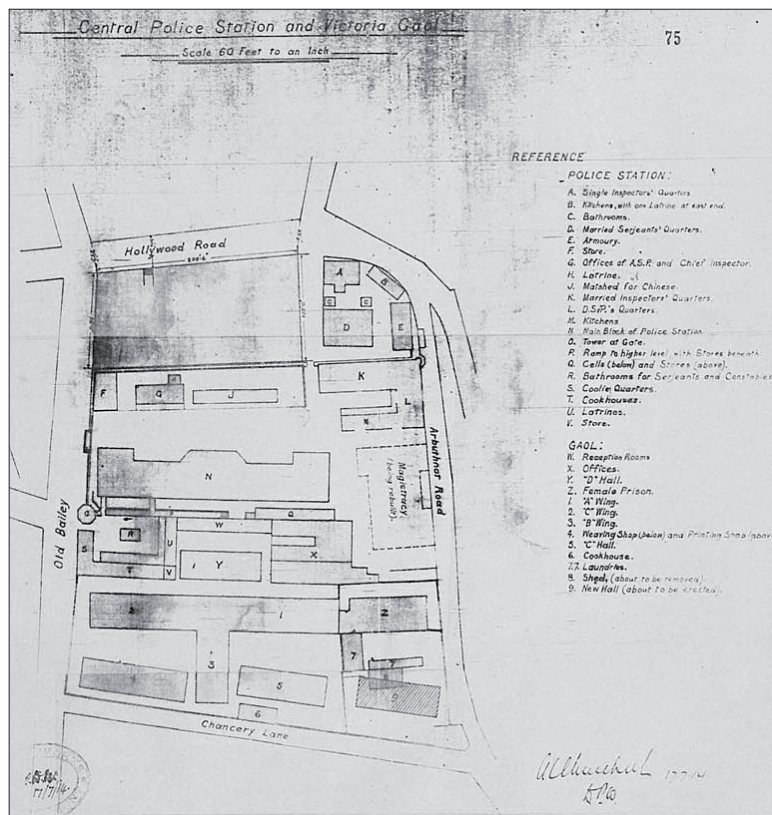 Central Police Station and Victoria Gaol
Scale 60 Feet to an Inch
75
REFERENCE
POLICE STATION:
A. Single Inspectors' Quarters
B. Kitchens, with one Latrine at east end.
C. Bathrooms.
D. Married Serjeants' Quarters.
E. Armoury.
F. Store.
G. Offices of A.S.P. and Chief Inspector.
H. Latrine.
J. Matshed for Chinese.
K. Married Inspectors' Quarters.
L. D.S.P.'s Quarters.
M. Kitchens
N Main Block of Police Station
O. Tower at Gate.
P. Ramp to higher level, with Stores beneath.
Q. Cells (below) and Stores (above).
R. Bathrooms for Serjeants and Constables
S. Coolie Quarters.
T. Cookhouses.
U. Latrines.
V. Store.
GAOL:
W. Reception Rooms
X. Offices.
Y. "D" Hall.
Z. Female Prison.
1. "A" Wing.
2. "C" Wing.
3. "B" Wing.
4. Weaving Shop (below) and Printing Shop (above
5. "C" Hall.
6. Cookhouse.
7.7. Laundries.
8. Shed, (about to be removed).
9. New Hall (about to be erected).
Hollywood Road
A
B
C
C
D
E
F
G
J
K
L
Arbuthnot Road
N
Magistracy
(being rebuilt)
Old Bailey
O
Q
R
S
U
W
X
T
V
Y
1
Z
3
7
7
5
9
6
Chancery Lane
17/7/14
17/7/14